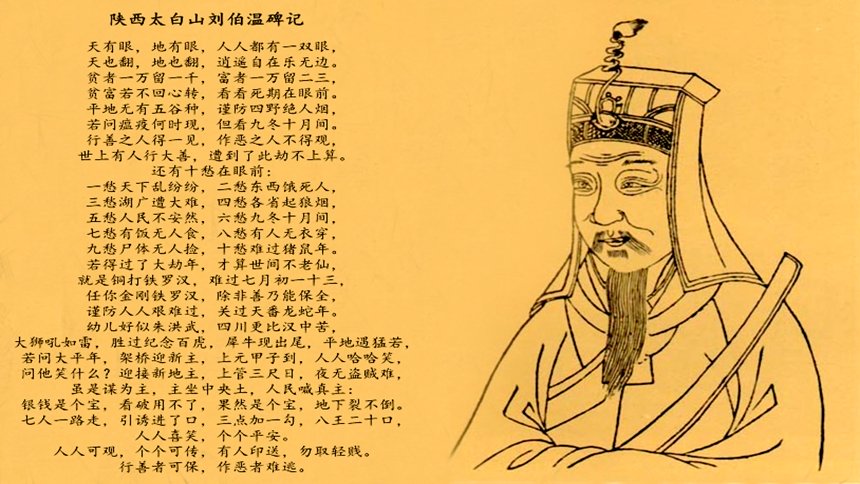 陕西太白山刘伯温碑记
天有眼，地有眼，人人都有一双眼，
天也翻，地也翻，逍遥自在乐无边。
贫者一万留一千，富者一万留二三，
贫富若不回心转，看看死期在眼前。
平地无有五谷种，谨防四野绝人烟，
若问瘟疫何时现，但看九冬十月间。
行善之人得一见，作恶之人不得观，
世上有人行大善，遭到了此劫不上算。
还有十愁在眼前：
一愁天下乱纷纷，二愁东西饿死人，
三愁湖广遭大难，四愁各省起狼烟，
五愁人民不安然，六愁九冬十月间，
七愁有饭无人食，八愁有人无衣穿，
九愁尸体无人捡，十愁难过猪鼠年。
若得过了大劫年，才算世间不老仙，
就是铜打铁罗汉，难过七月初一十三，
任你金刚铁罗汉，除非善乃能保全，
谨防人人艰难过，关过天番龙蛇年。
幼儿好似朱洪武，四川更比汉中苦，
大狮吼如雷，胜过纪念百虎，犀牛现出尾，平地遇猛若，
若问大平年，架桥迎新主，上元甲子到，人人哈哈笑，
问他笑什么？迎接新地主，上管三尺日，夜无盗贼难，
虽是谋为主，主坐中央土，人民喊真主：
银钱是个宝，看破用不了，果然是个宝，地下裂不倒。
七人一路走，引诱进了口，三点加一勾，八王二十口，
人人喜笑，个个平安。
人人可观，个个可传，有人印送，勿取轻贱。
行善者可保，作恶者难逃。